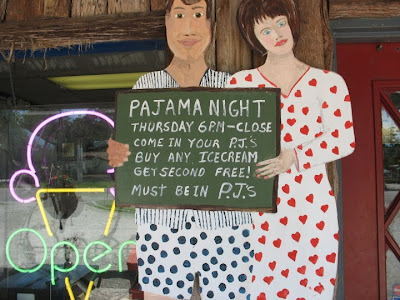 PAJAMA NIGHT
THURSDAY 6PM-CLOSE
COME IN YOUR P.J.'S
BUY ANY ICECREAM
GET SECOND FREE!
MUST BE IN P.J.'S
Open